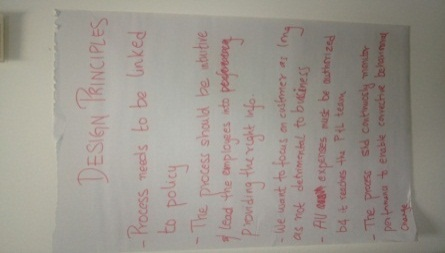 DESIGN PRINCIPLES
- Process needs to be linked
to policy
- The process should be intuitive
& lead the employees into
providing the right info.
- We want to focus on customer as long
as not detrimental to business
- All expenses must be authorized
b4 it reaches the P2L team
- The process sld continuously monitor
performance to enable corrective behavioural
change